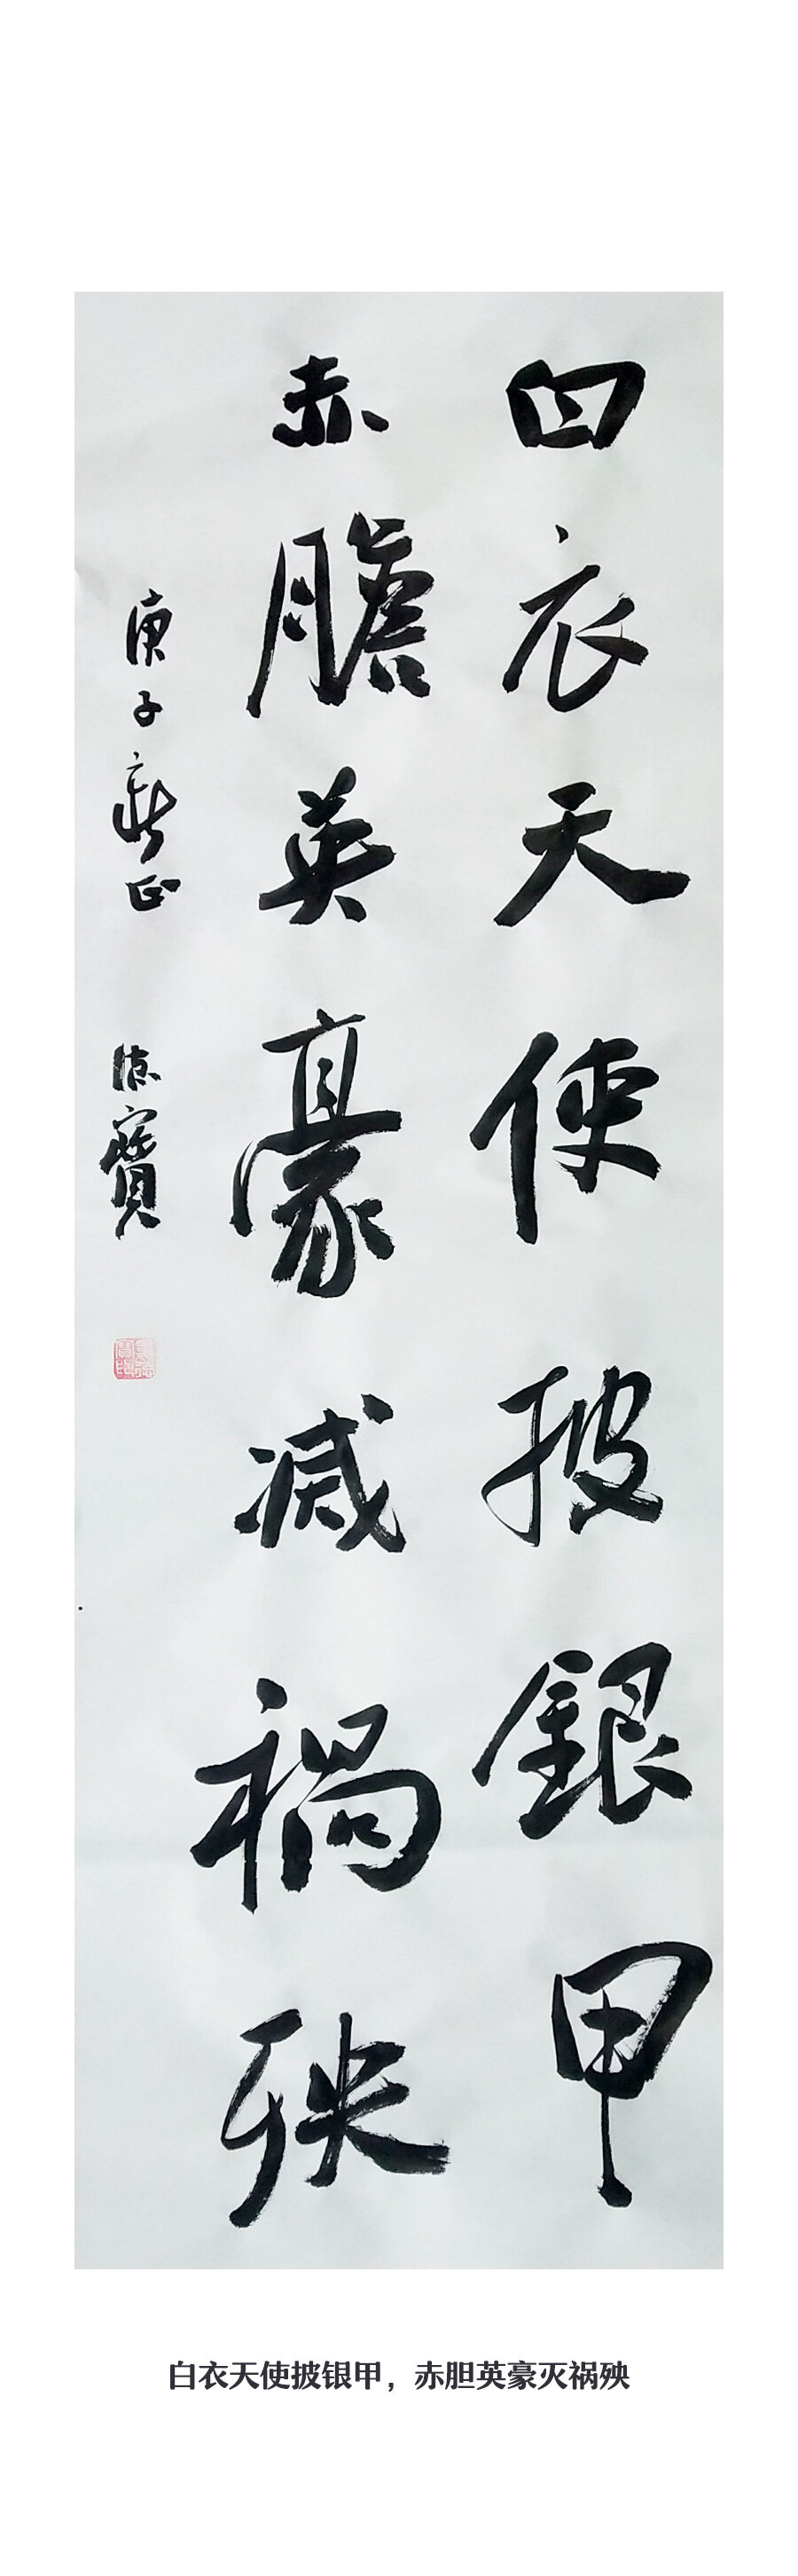 白衣天使披銀甲
赤膽英豪滅禍殃
庚子新正 德寶
白衣天使披银甲，赤胆英豪灭祸殃